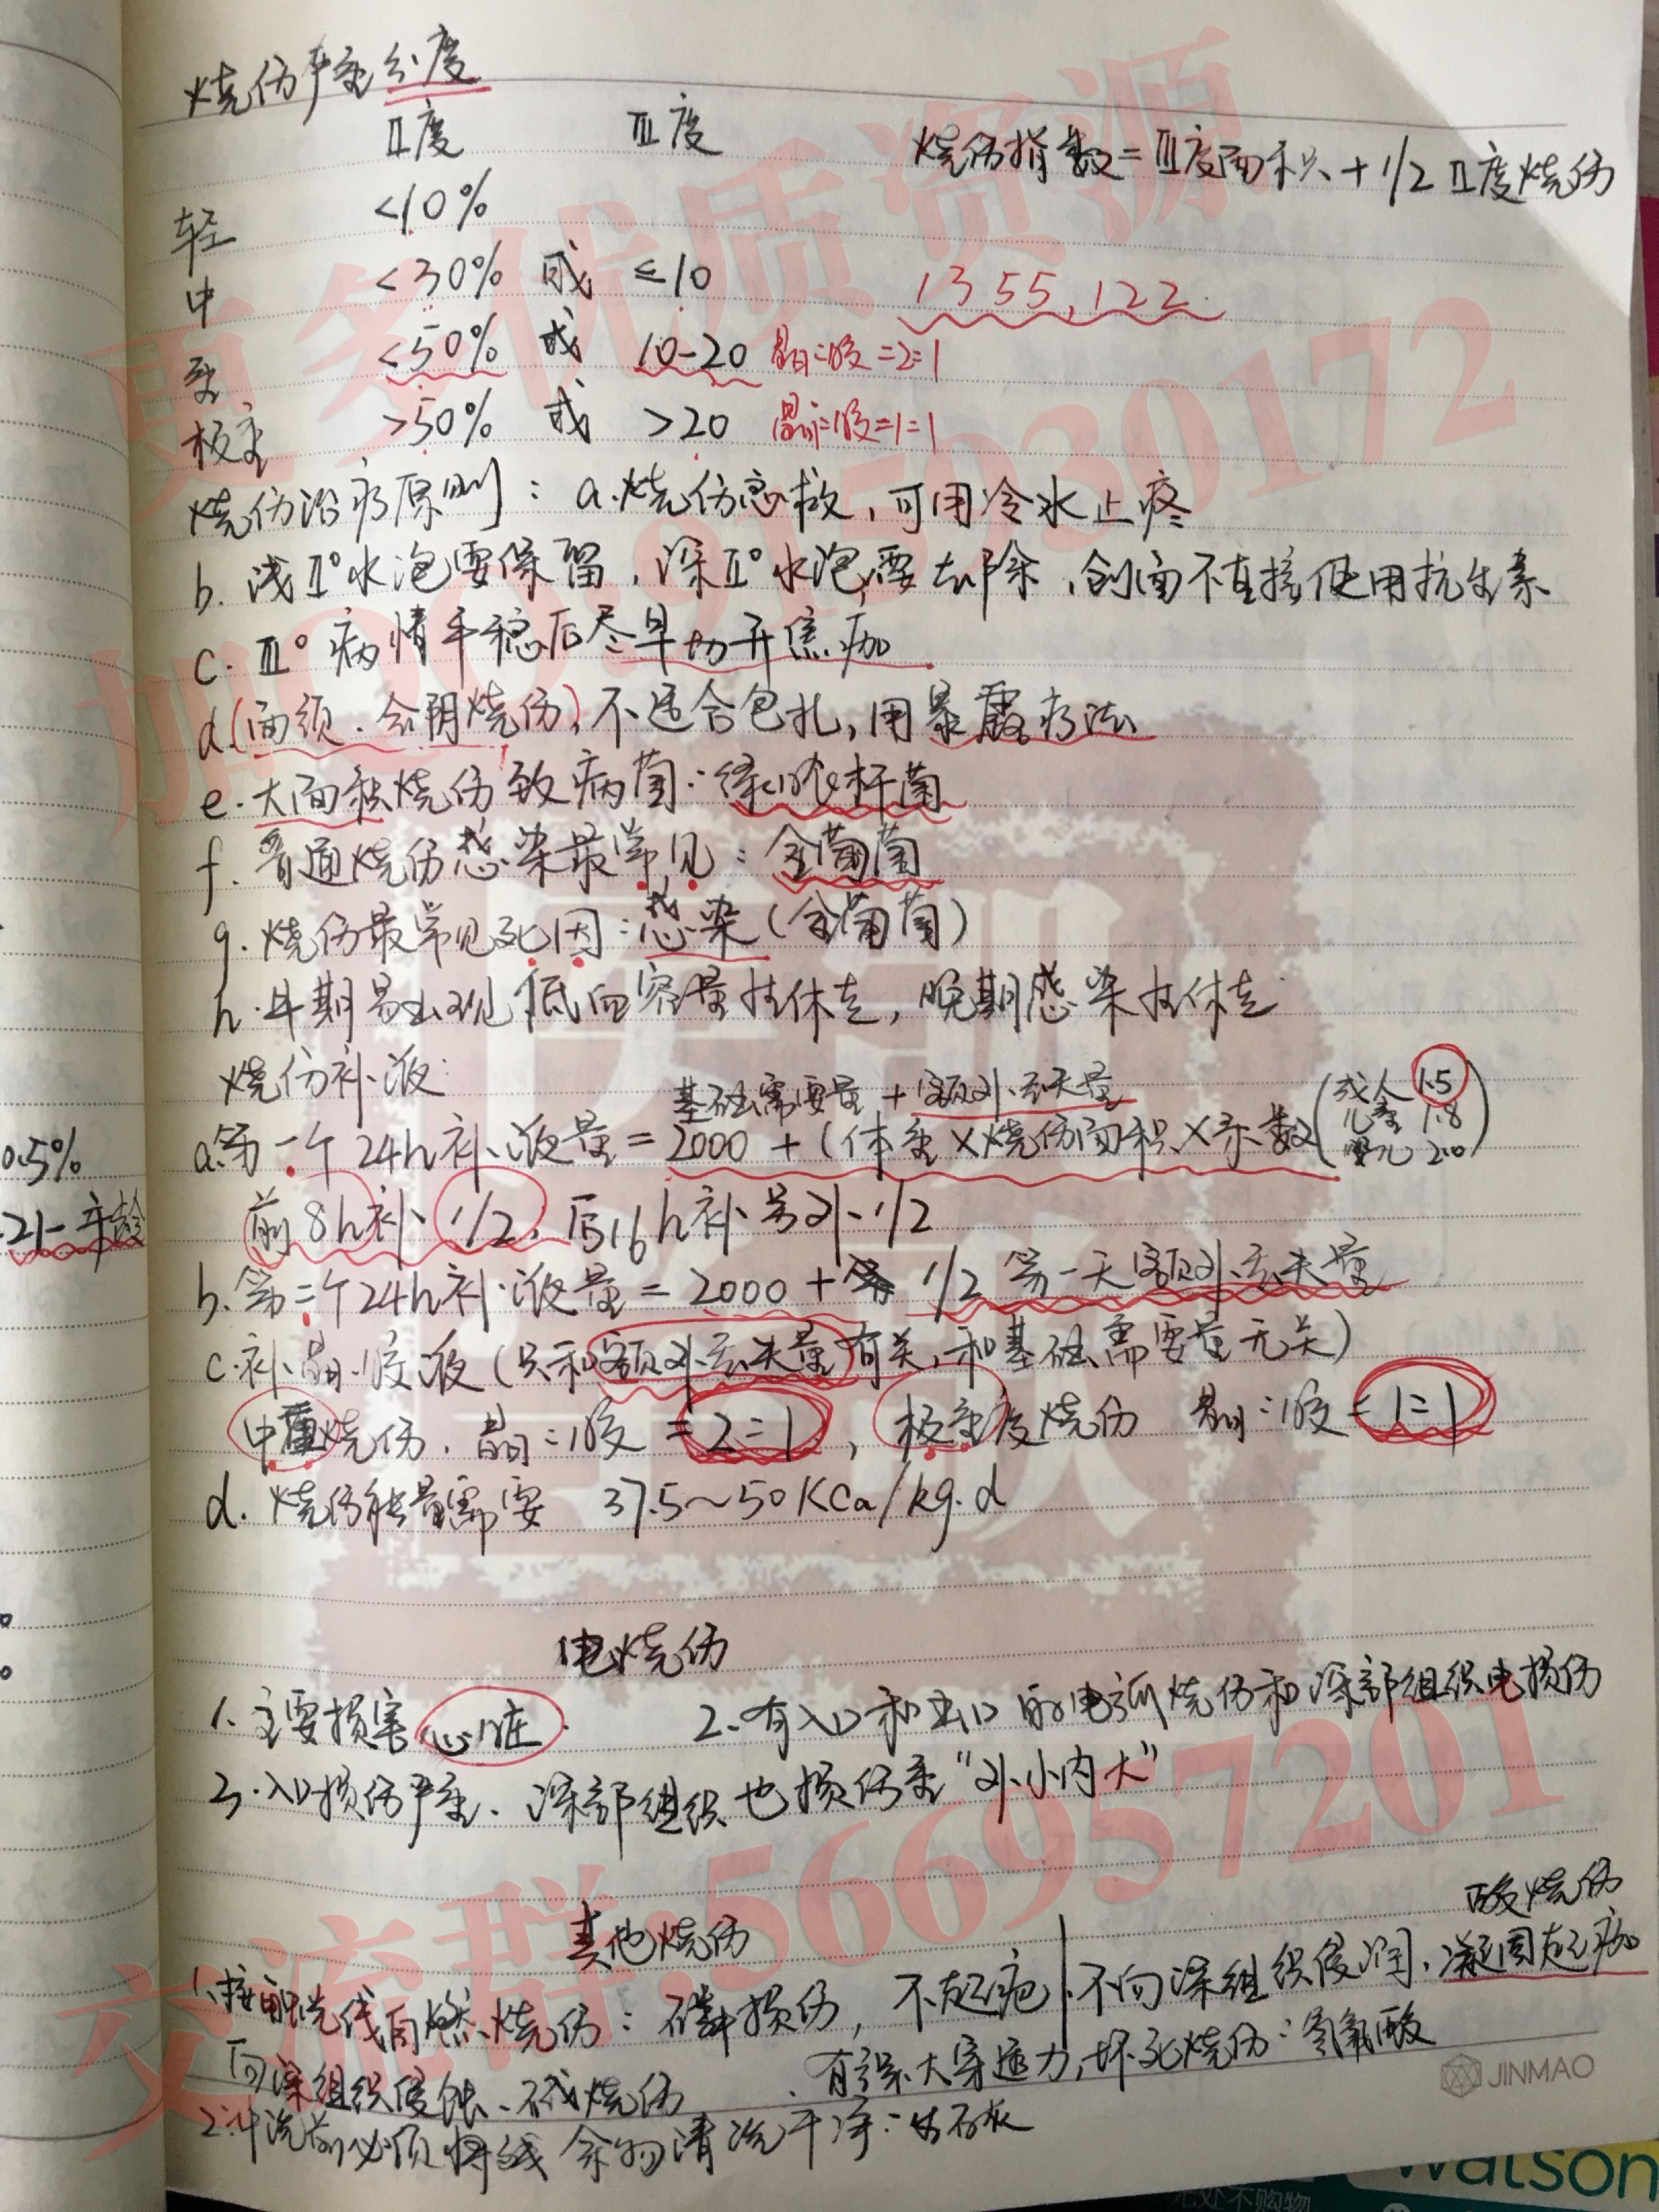 烧伤严重分度
Ⅱ度 Ⅲ度 烧伤指数=Ⅲ度面积+1/2Ⅱ度烧伤
轻 <10%
中 <30% 或 ≤10 1355,122
重 <50% 或 10-20 晶:胶=2:1
极重 >50% 或 >20 晶:胶=1:1
烧伤治疗原则: a.烧伤急救,可用冷水止疼
b. 浅Ⅱ°水泡要保留,深Ⅱ°水泡要去除,创面不直接使用抗生素
c. Ⅲ°病情平稳后尽早切开焦痂
d.(面颈.会阴烧伤)不适合包扎,用暴露疗法
e.大面积烧伤致病菌:绿脓杆菌
f.普通烧伤感染最常见:金葡菌
g.烧伤最常见死因:感染(金葡菌)
h.早期易出现低血容量性休克,晚期感染性休克
烧伤补液:
基础需要量+额外丢失量
a.第一个24h补液量=2000+(体重×烧伤面积×系数(成人1.5 儿童1.8 婴儿2.0)
前8h补1/2,后16h补另外1/2
b.第二个24h补液量=2000+1/2第一天额外丢失量
c.补晶.胶液(只和额外丢失量有关,和基础需要量无关)
中重烧伤.晶:胶=2:1,极重度烧伤 晶:胶=1:1
d.烧伤能量需要 37.5~50KCa/kg.d
0.5%
21-年龄
电烧伤
1.主要损害心脏. 2.有入口和出口的电弧烧伤和深部组织电损伤
3.入口损伤严重.深部组织也损伤重"外小内大"
其他烧伤
酸烧伤
1.接触光线自燃烧伤:磷损伤,不起疱|不向深组织侵润,凝固起痂
向深组织侵蚀、碱烧伤 .有强大穿透力,坏死烧伤:氢氟酸
2.冲洗前必须将残余物清洗干净:生石灰
JINMAO
watson
更多优质资源
加QQ:915030172
交流群:566957201